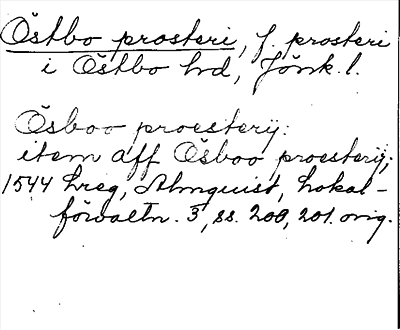 Östbo prosteri, f. prosteri
i Östbo hd, Jönk. l.
Ösboo proesterij:
item aff Ösboo proesterij;
1544 hreg, Almquist, Lokal-
förvaltn. 3, ss. 200, 201. orig.